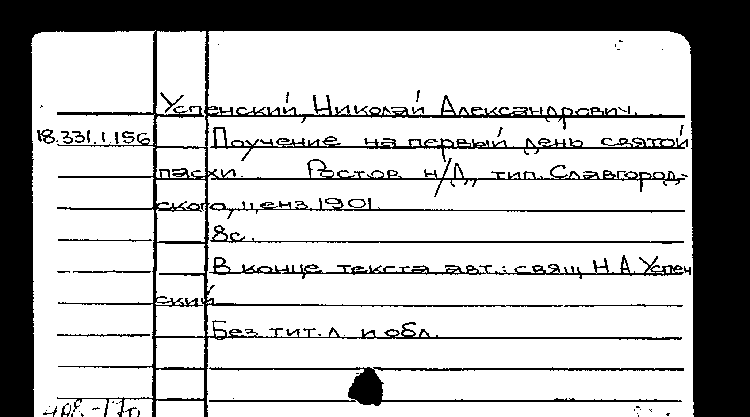 Успенский, Николай Александрович.
18.331.1.156 Поучение на первый день святой
пасхи. Ростов н/Д, тип. Славгород-
ского, ценз. 1901.
8с.
В конце текста авт.: свящ. Н.А. Успен
ский
Без тит. л. и обл.